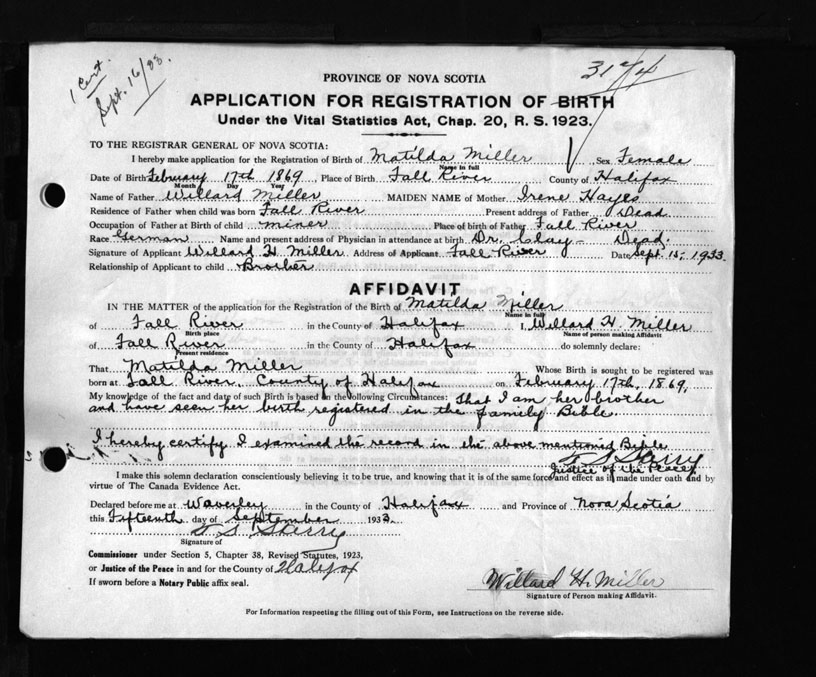 1 Cert.
Sept. 16/33.
3174
PROVINCE OF NOVA SCOTIA
APPLICATION FOR REGISTRATION OF BIRTH
Under the Vital Statistics Act, Chap. 20, R. S. 1923.
TO THE REGISTRAR GENERAL OF NOVA SCOTIA:
I hereby make application for the Registration of Birth of Matilda Miller Sex Female
Name in full
Date of Birth February 17th 1869 Place of Birth Fall River County of Halifax
Month Day Year
Name of Father Willard Miller MAIDEN NAME of Mother Irene Hayes
Residence of Father when child was born Fall River Present address of Father Dead
Occupation of Father at Birth of child miner Place of birth of Father Fall River
Race German Name and present address of Physician in attendance at birth Dr. Clay - Dead
Signature of Applicant Willard H. Miller Address of Applicant Fall River Date Sept. 15, 1933.
Relationship of Applicant to child Brother
AFFIDAVIT
IN THE MATTER of the application for the Registration of the Birth of Matilda Miller
Name in full
of Fall River in the County of Halifax I, Willard H. Miller
Birth place Name of person making Affidavit
of Fall River in the County of Halifax do solemnly declare:
Present residence
That Matilda Miller Whose Birth is sought to be registered was
born at Fall River, County of Halifax on February 17th, 1869,
My knowledge of the fact and date of such Birth is based on the following Circumstances: That I am her brother
and have seen her birth registered in the family Bible.
I hereby certify I examined the record in the above mentioned Bible
Justice of the Peace
I make this solemn declaration conscientiously believing it to be true, and knowing that it is of the same force and effect as if made under oath and by
virtue of The Canada Evidence Act.
Declared before me at Waverley in the County of Halifax and Province of Nova Scotia
this Fifteenth day of September 1933.
Signature of
Commissioner under Section 5, Chapter 38, Revised Statutes, 1923,
or Justice of the Peace in and for the County of Halifax
If sworn before a Notary Public affix seal.
Willard H. Miller
Signature of Person making Affidavit.
For Information respecting the filling out of this Form, see Instructions on the reverse side.